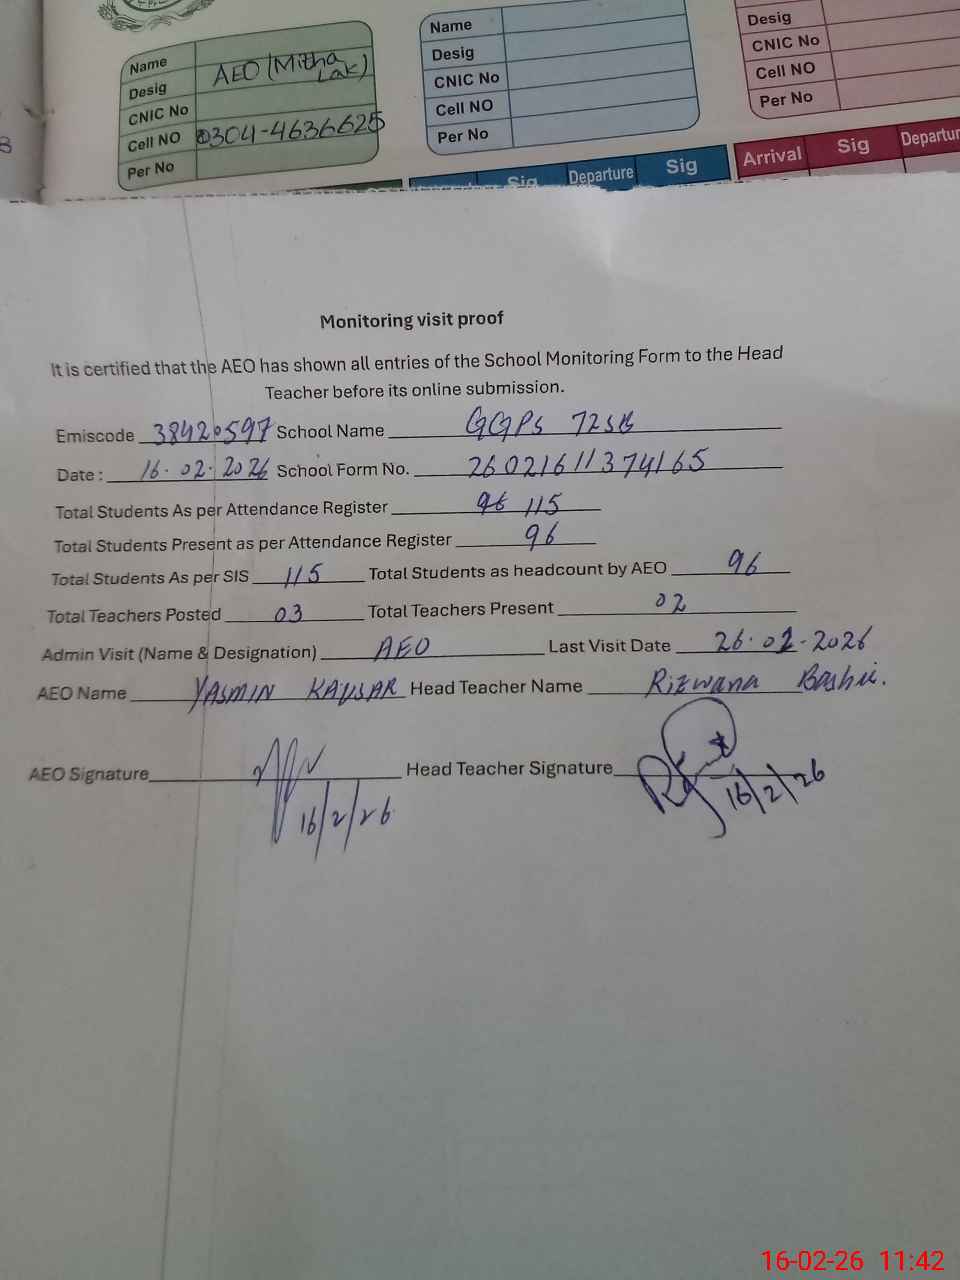 Name
Desig AEO (Mitha Lak)
CNIC No
Cell NO 0304-4636625
Per No
Name
Desig
CNIC No
Cell NO
Per No
Desig
CNIC No
Cell NO
Per No
Sig Departure Sig
Arrival Sig Departur
Monitoring visit proof
It is certified that the AEO has shown all entries of the School Monitoring Form to the Head
Teacher before its online submission.
Emiscode 38420597 School Name GGPS 72SB
Date : 16.02.2026 School Form No. 26021611374165
Total Students As per Attendance Register 96 115
Total Students Present as per Attendance Register 96
Total Students As per SIS 115 Total Students as headcount by AEO 96
Total Teachers Posted 03 Total Teachers Present 02
Admin Visit (Name & Designation) AEO Last Visit Date 26.01.2026
AEO Name YASMIN KAUSAR Head Teacher Name Rizwana Bashir.
AEO Signature Head Teacher Signature
16/2/26 16/2/26
16-02-26 11:42